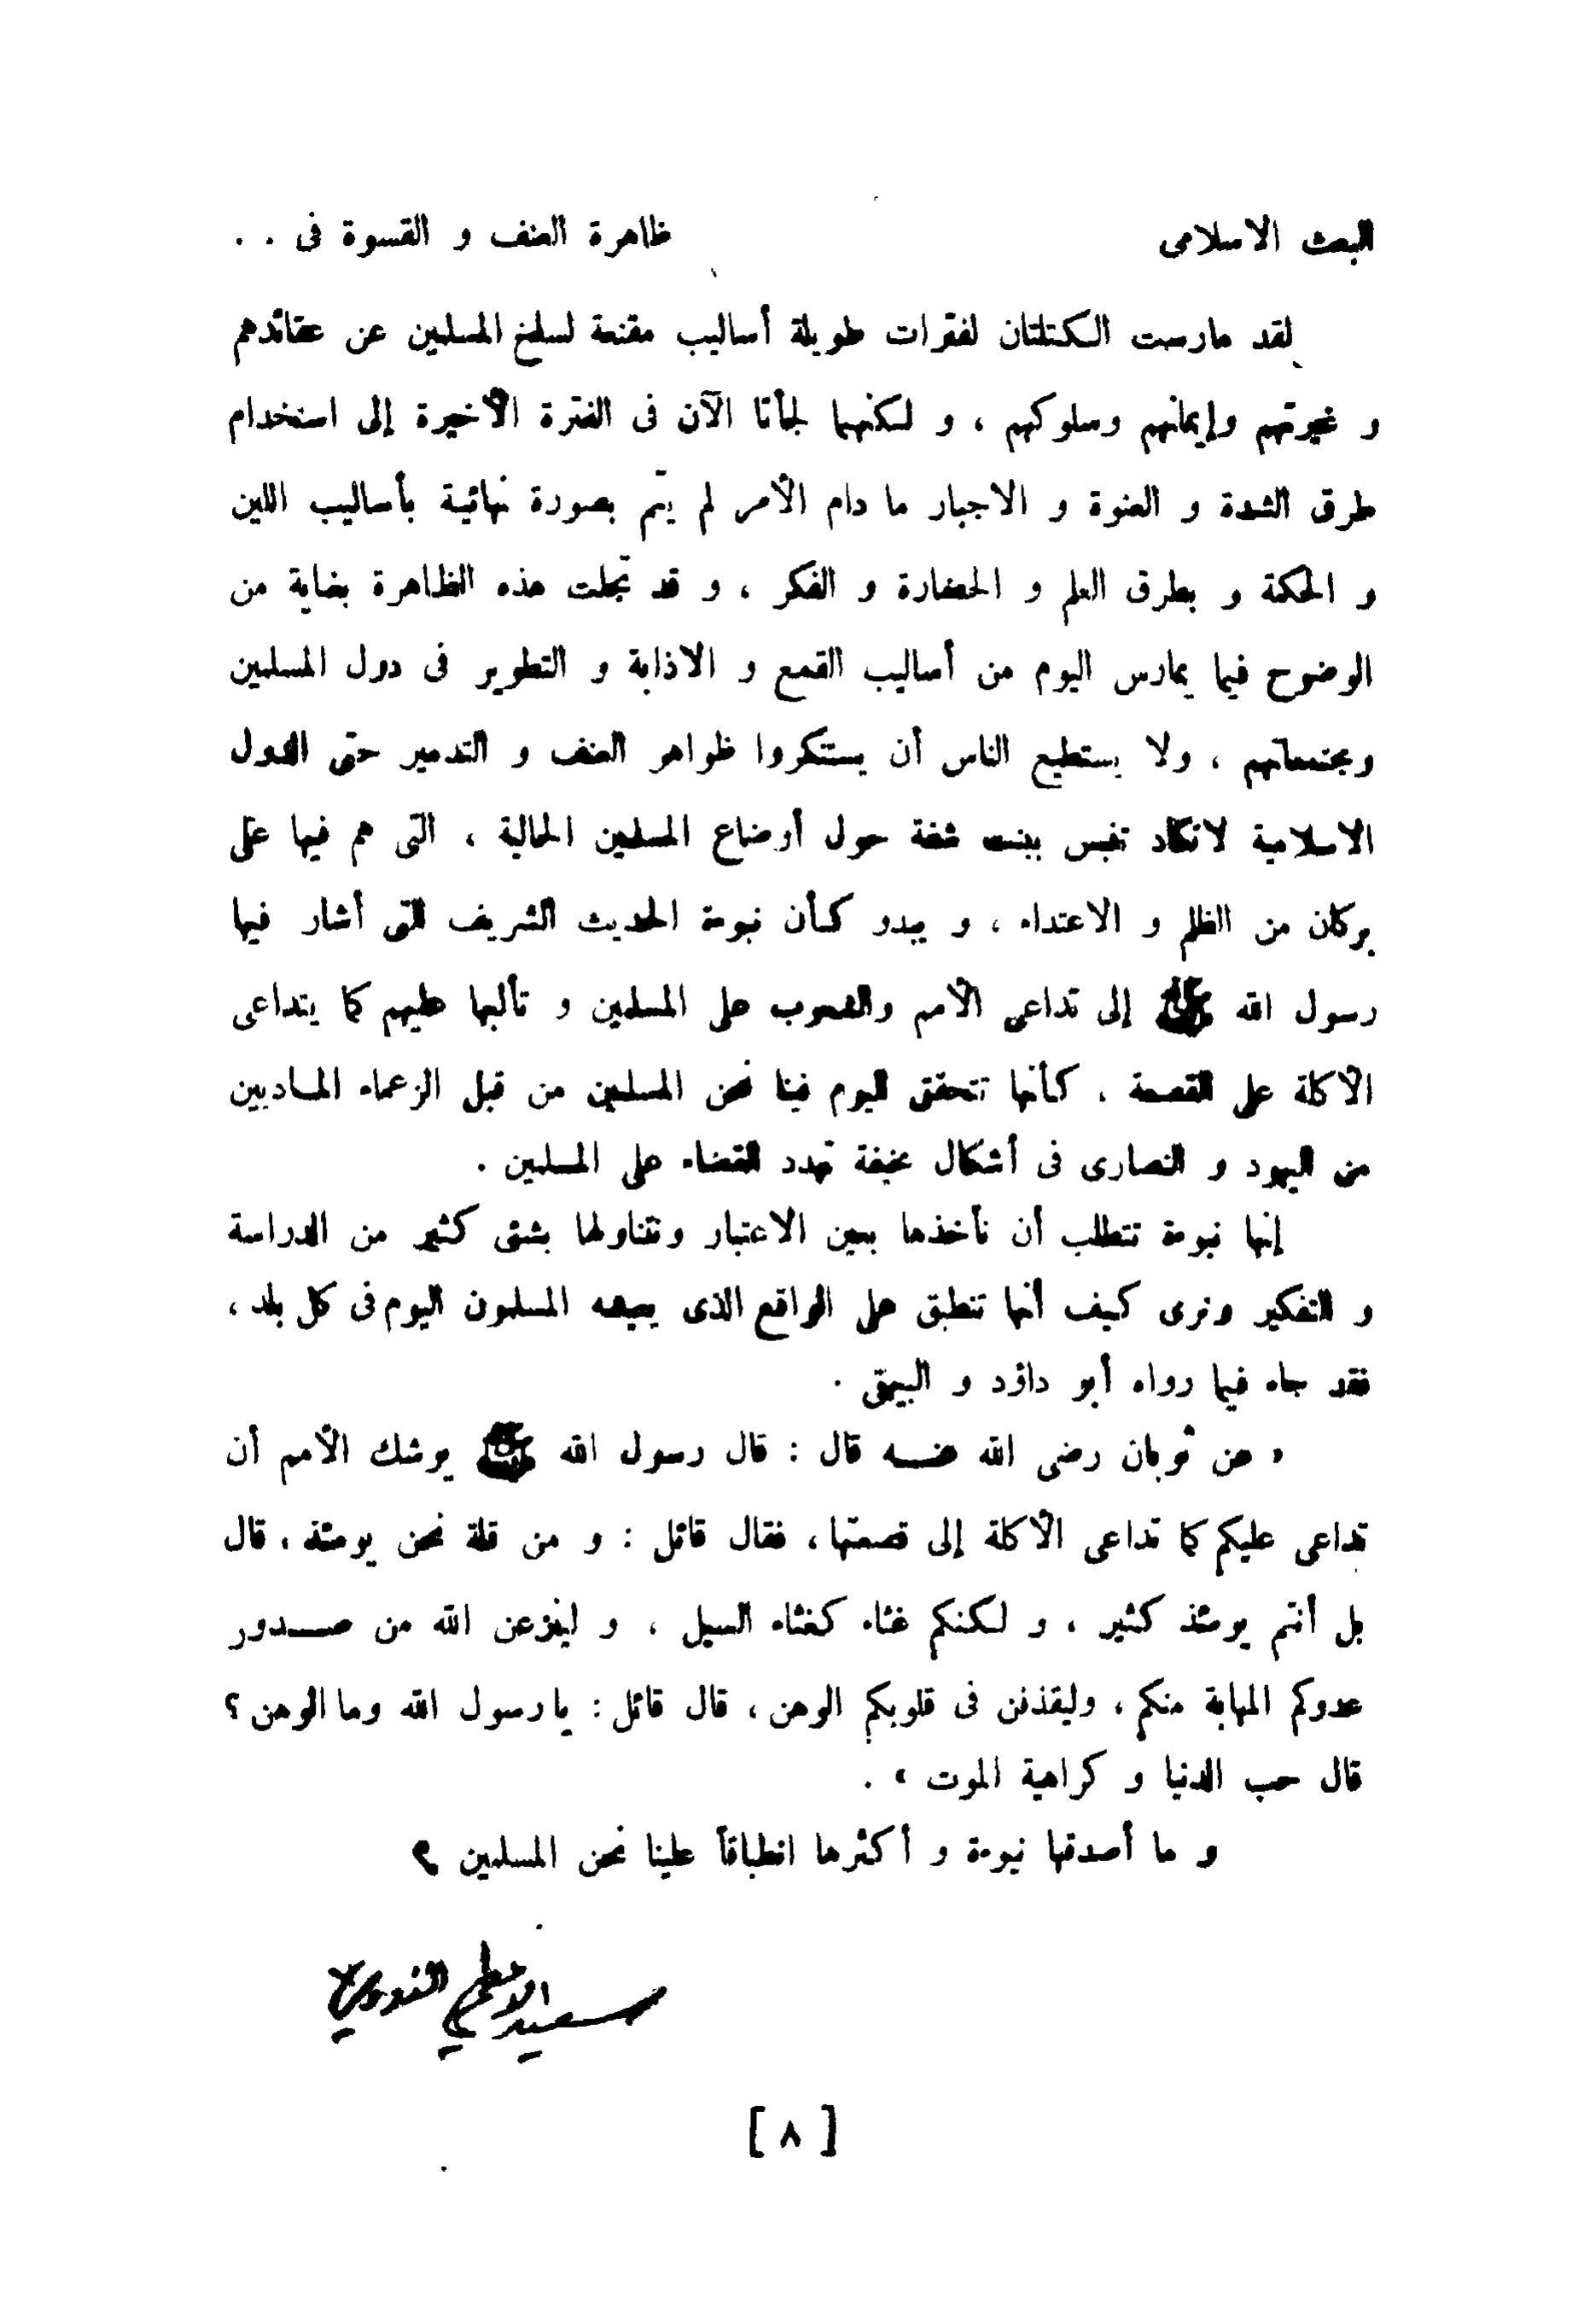 البعث الاسلامى ظاهرة العنف و القسوة فى . .
لقد مارست الكتلتان لفترات طويلة أساليب مقنعة لسلخ المسلمين عن عقائدهم
و غيرتهم وإيمانهم وسلوكهم ، و لكنهما لجأتا الآن فى الفترة الأخيرة إلى استخدام
طرق الشدة و العنوة و الاجبار ما دام الأمر لم يتم بصورة نهائية بأساليب اللين
و الحكمة و بطرق العلم و الحضارة و الفكر ، و قد تجلت هذه الظاهرة بغاية من
الوضوح فيما يمارس اليوم من أساليب القمع و الاذابة و التطوير فى دول المسلمين
ومجتمعاتهم ، ولا يستطيع الناس أن يستنكروا ظواهر العنف و التدمير حتى الدول
الاسلامية لاتكاد تنبس ببنت شفة حول أوضاع المسلمين الحالية ، التى هم فيها على
بركان من الظلم و الاعتداء ، و يبدو كأن نبوءة الحديث الشريف التى أشار فيها
رسول الله ﷺ إلى تداعى الأمم والشعوب على المسلمين و تألبها عليهم كما يتداعى
الأكلة على القصعة ، كأنها تتحقق اليوم فينا نحن المسلمين من قبل الزعماء المـاديين
من اليهود و النصارى فى أشكال مخيفة تهدد القضاء على المسلمين .
إنها نبوءة تتطلب أن نأخذها بعين الاعتبار ونتناولها بشئى كثير من الدراسة
و التفكير ونرى كيف أنها تنطبق على الواقع الذى يعيشه المسلمون اليوم فى كل بلد ،
فقد جاء فيما رواه أبو داؤد و البيهقى .
« عن ثوبان رضى الله عنـــه قال : قال رسول الله ﷺ يوشك الأمم أن
تداعى عليكم كما تداعى الأكلة إلى قصعتها ، فقال قائل : و من قلة نحن يومئذ ، قال
بل أنتم يومئذ كثير ، و لـكنكم غثاء كغثاء السيل ، و لينزعن الله من صـــدور
عدوكم المهابة منكم ، وليقذفن فى قلوبكم الوهن ، قال قائل : يا رسول الله وما الوهن ؟
قال حب الدنيا و كراهية الموت » .
و ما أصدقها نبوءة و أكثرها انطباقاً علينا نحن المسلمين ؟
سعيد الاعظمي الندوي
[ ٨ ]